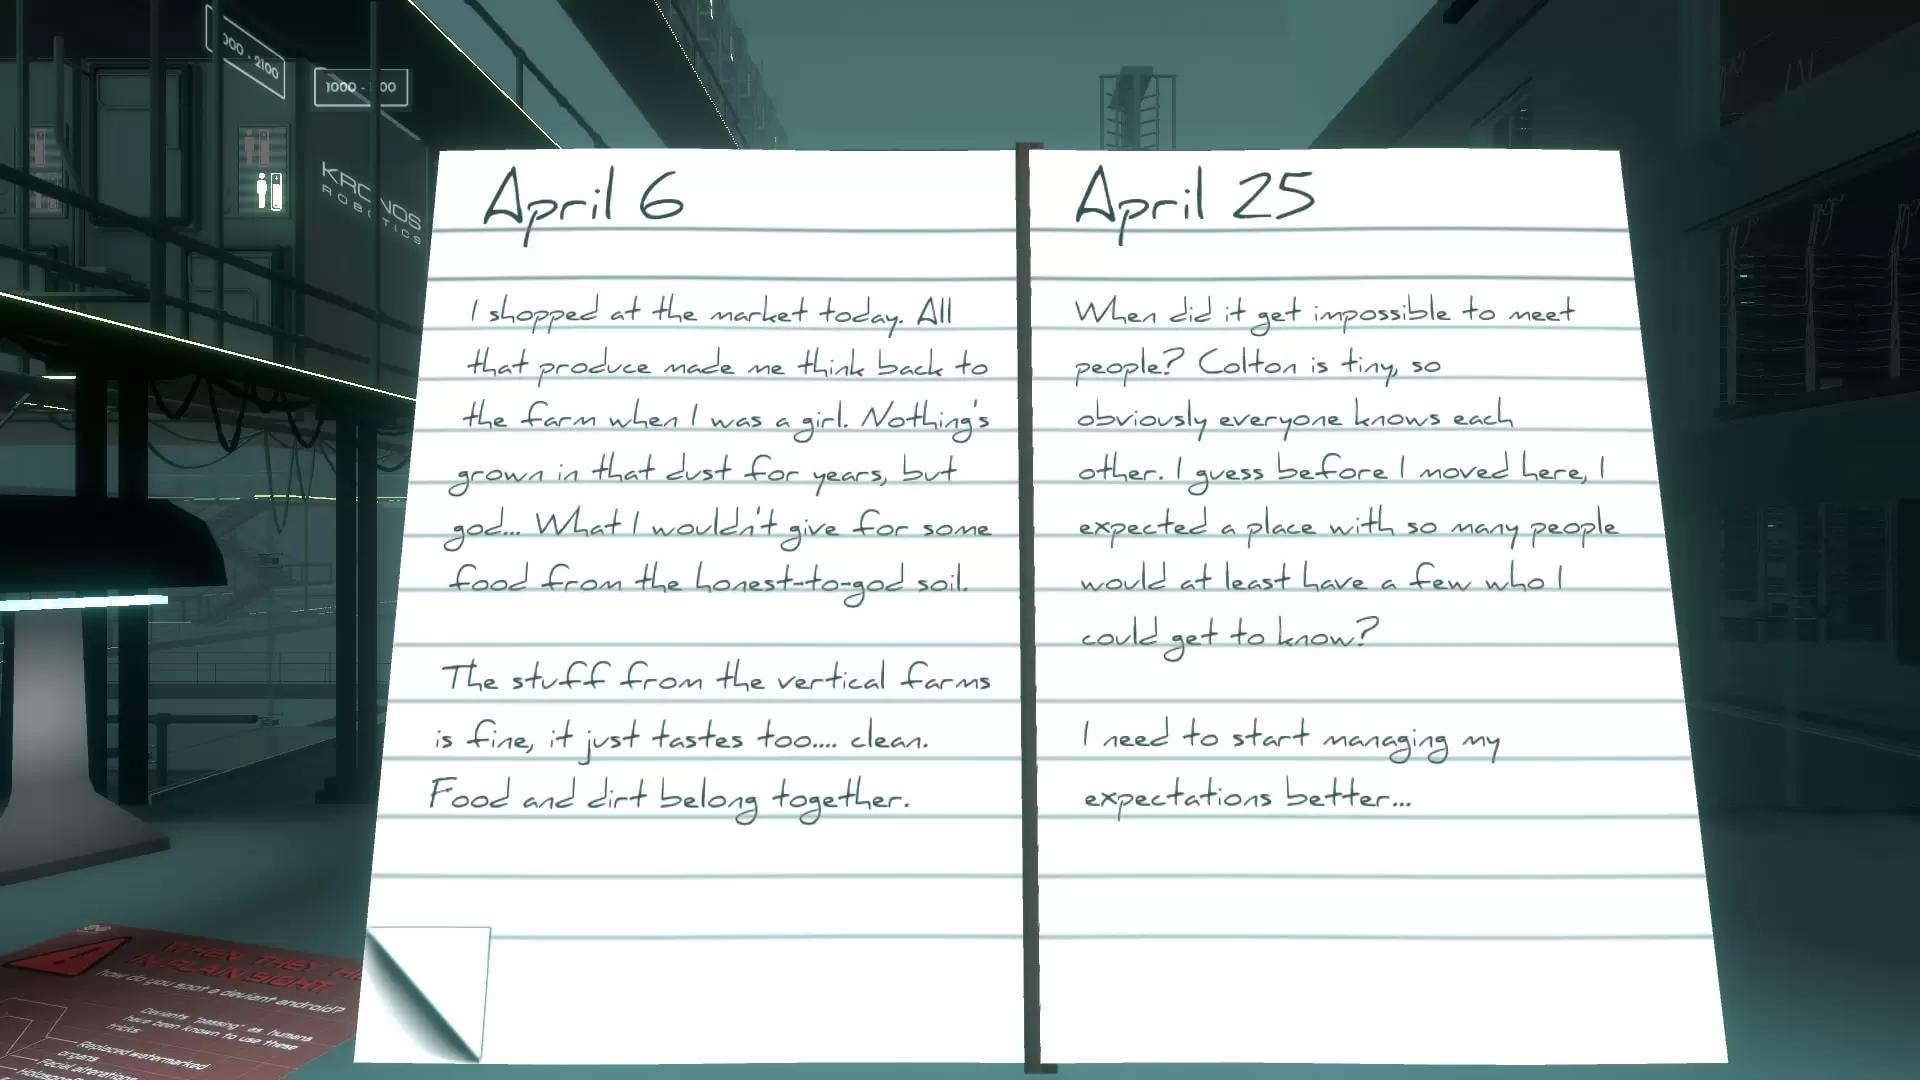 2100
1000 -
KRONOS
ROBOTICS
April 6
I shopped at the market today. All
that produce made me think back to
the farm when I was a girl. Nothing's
grown in that dust for years, but
god... What I wouldn't give for some
food from the honest-to-god soil.
The stuff from the vertical farms
is fine, it just tastes too.... clean.
Food and dirt belong together.
April 25
When did it get impossible to meet
people? Colton is tiny, so
obviously everyone knows each
other. I guess before I moved here, I
expected a place with so many people
would at least have a few who I
could get to know?
I need to start managing my
expectations better...
WHEN THEY
IN PLAIN SIGHT
how do you spot a deviant android?
Deviants 'passing' as humans
have been known to use these
tricks:
Replaced watermarked
organs
Facial alterations